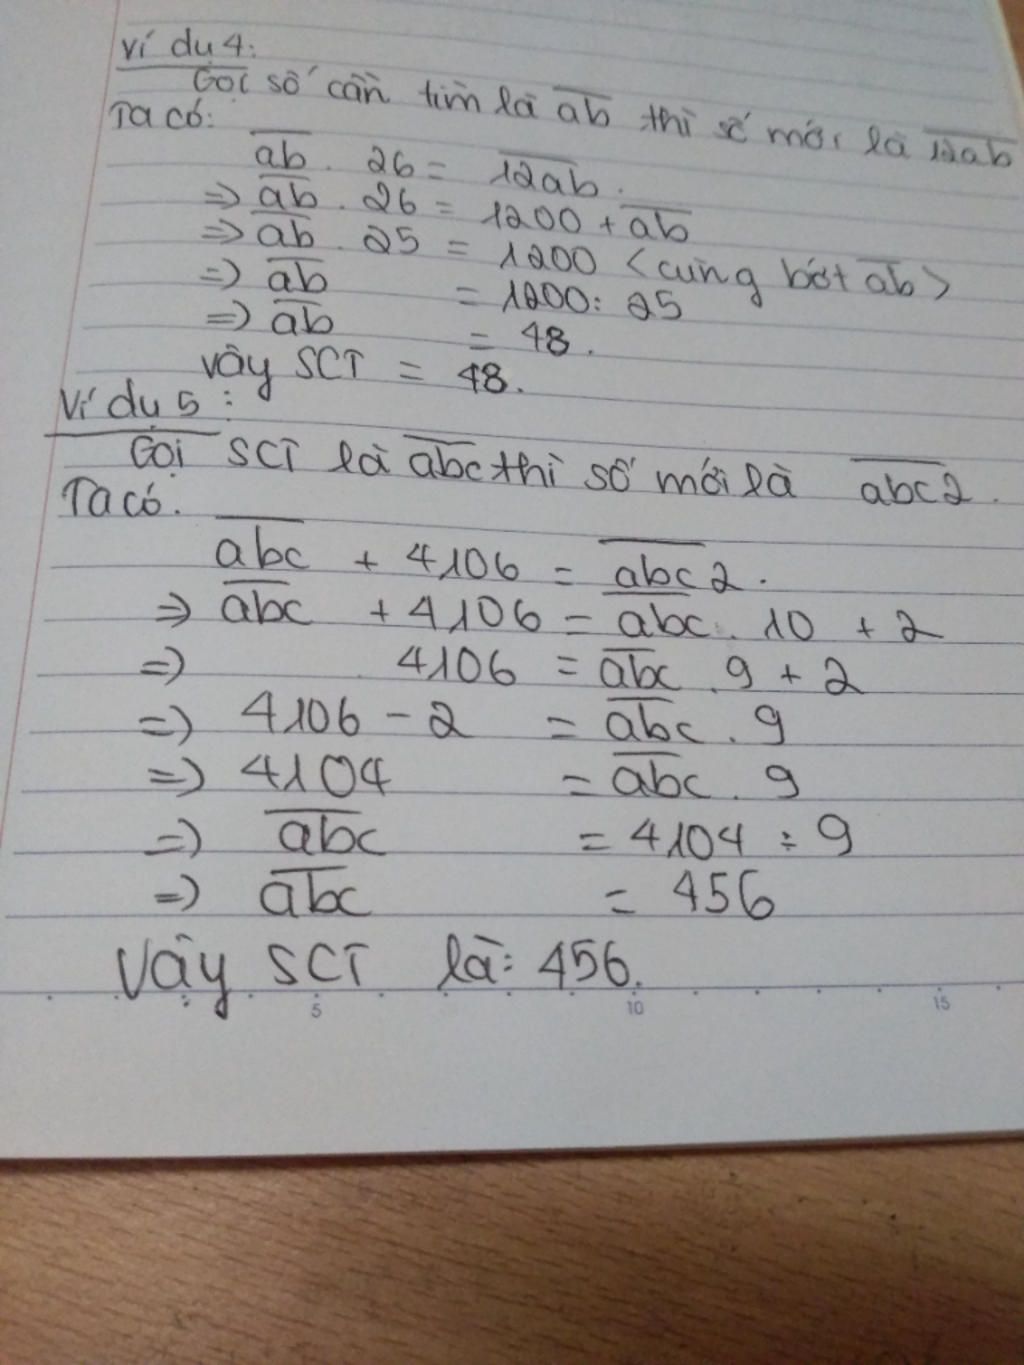 ví dụ 4:
Gọi số cần tìm là a͞b thì số mới là 1͞2͞a͞b
Ta có:
a͞b . 26 = 1͞2͞a͞b.
=> a͞b . 26 = 1200 + a͞b
=> a͞b . 25 = 1200 <cùng bớt a͞b>
=> a͞b = 1200: 25
=> a͞b = 48.
vậy SCT = 48.
Ví dụ 5:
Gọi SCT là a͞b͞c thì số mới là a͞b͞c͞2.
Ta có.
a͞b͞c + 4106 = a͞b͞c͞2.
=> a͞b͞c + 4106 = a͞b͞c . 10 + 2
=> 4106 = a͞b͞c . 9 + 2
=> 4106 - 2 = a͞b͞c . 9
=> 4104 = a͞b͞c . 9
=> a͞b͞c = 4104 ÷ 9
=> a͞b͞c = 456
Vậy SCT là: 456.
5 10 15